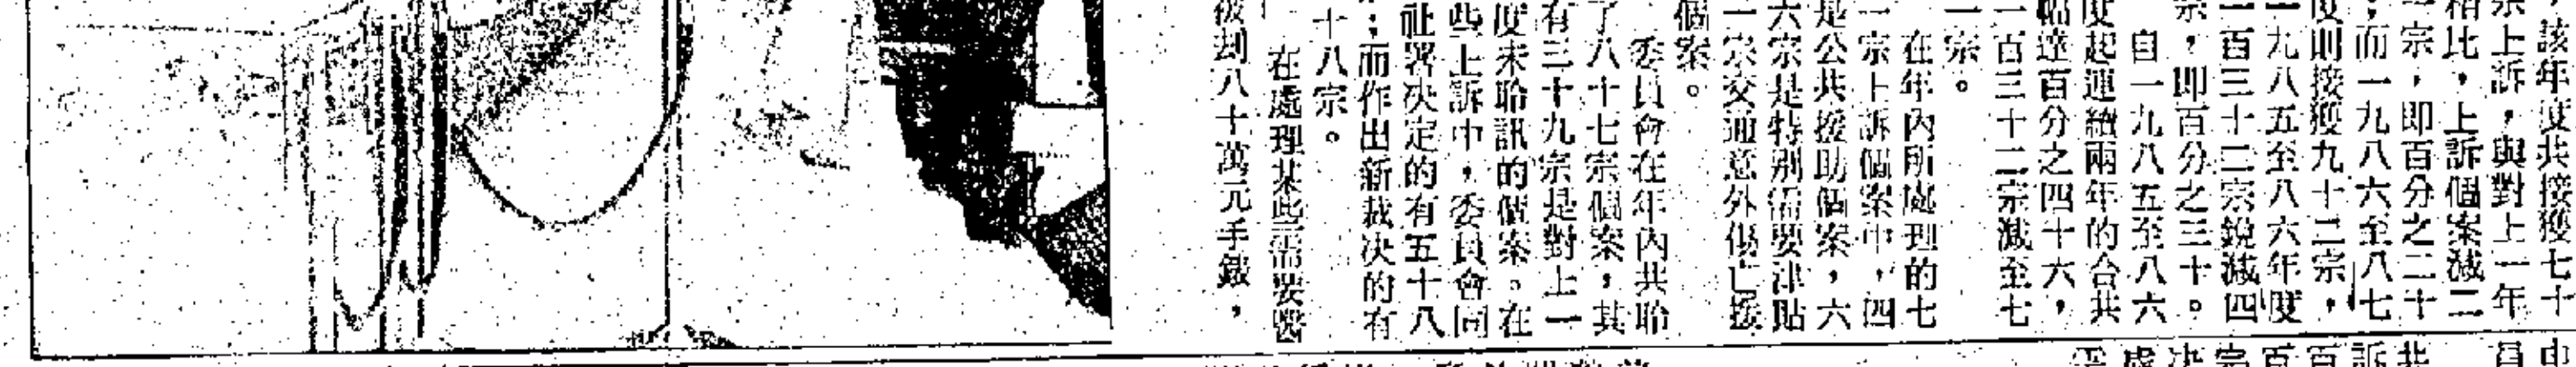 ，該年度共接獲七十
宗上訴，與對上一年
相比，上訴個案減二
一宗，即百分之二十
；而一九八六至八七
度則接獲九十二宗，
一九八五至八六年度
一百三十二宗銳減四
宗，即百分之三十。
自一九八五至八六
度起連續兩年的合共
幅達百分之四十六，
一百三十二宗減至七
一宗。
在年內所處理的七
一宗上訴個案中，四
是公共援助個案，六
六宗是特別需要津貼
一宗交通意外傷亡援
個案。
委員會在年內共聆
了八十七宗個案，其
有三十九宗是對上一
度未聆訊的個案。在
些上訴中，委員會同
祉署決定的有五十八
；而作出新裁決的有
十八宗。
在處理某些需要醫
被刧八十萬元手鐲，